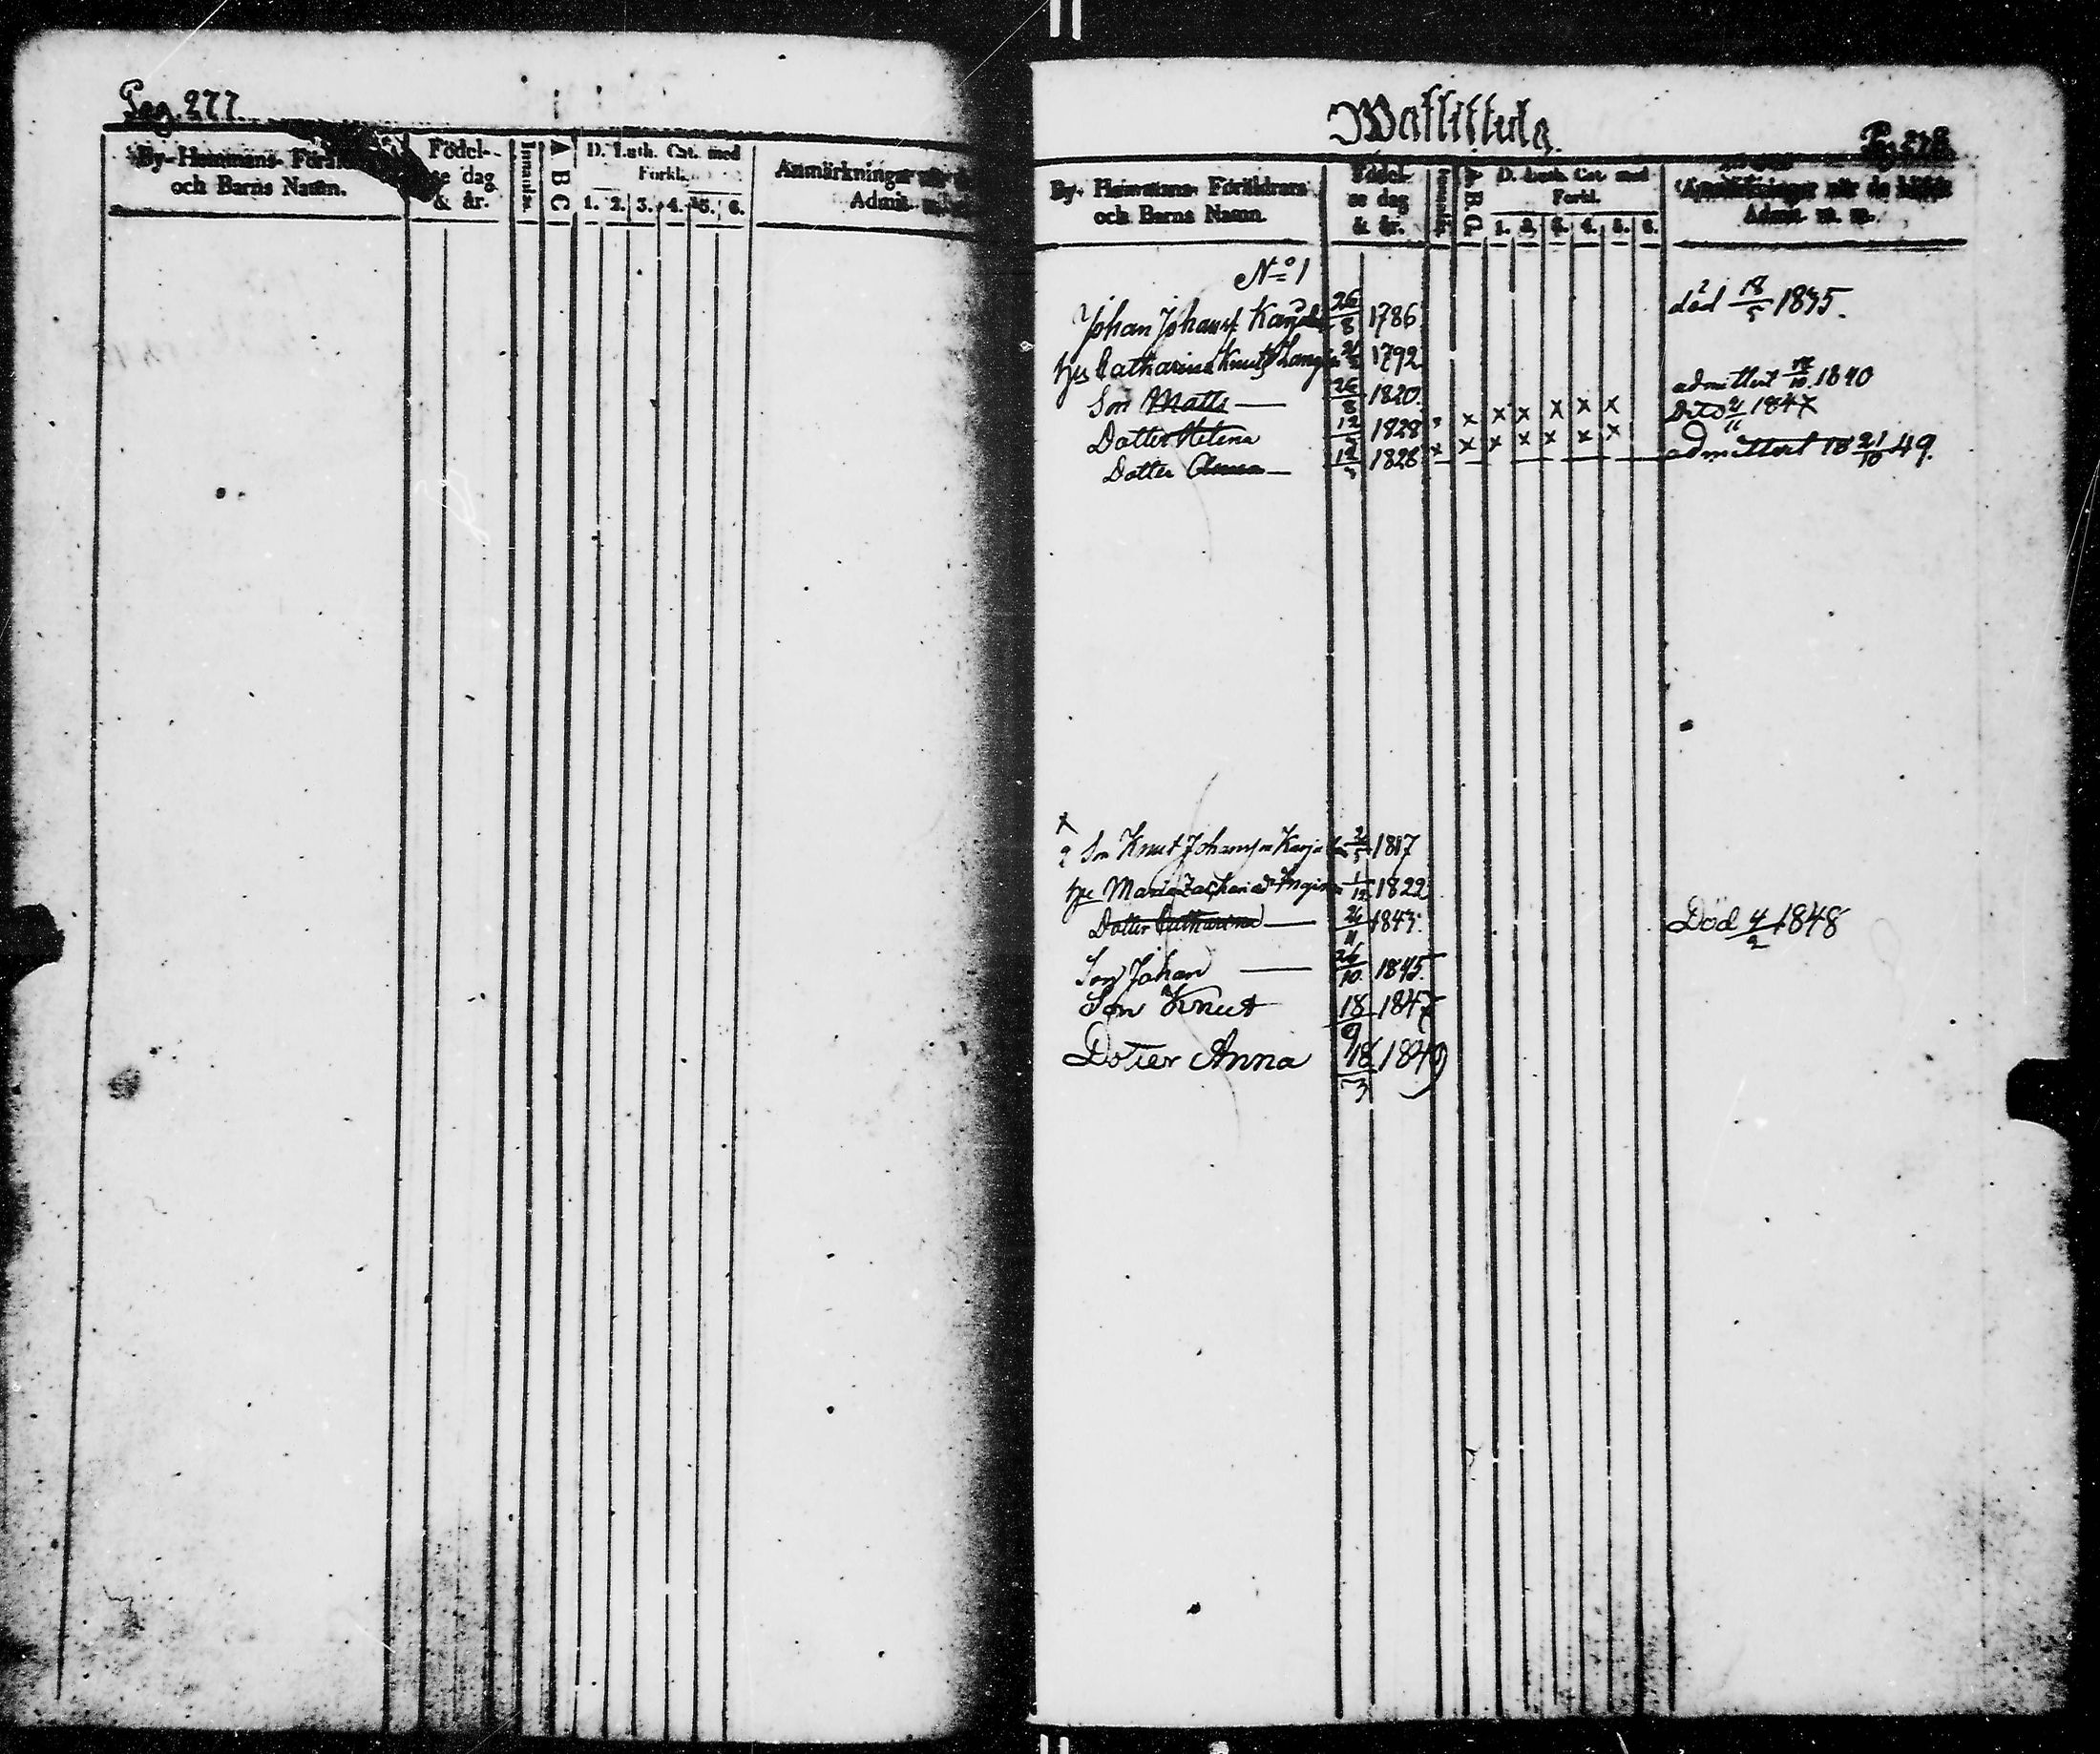 Pag. 277.
By- Hemmans- Föräl
och Barns Namn.
Födel-
se dag
& år.
Innanläs.
A B C
D. Luth. Cat. med
Förkl.
1. 2. 3. 4. 5. 6.
Anmärkningar
Admit.
Pag 278
By- Hemmans- Föräldrars
och Barns Namn.
Födel-
se dag
& år.
Innanläs.
A. B. C.
D. Luth. Cat. med
Förkl.
1. 2. 3. 4. 5. 6.
Anmärkningar när de
Admit. m. m.
No 1
Johan Johansf 26/8 1786 död 18/5 1835.
hu Catharina Knuts 1792
Son Matts — 26/8 1820. admittert 1840
Dotter Helena 12/3 1828 x x x x x x Dito 1847
Dotter Anna — 12/3 1828 x x x x x x x admittert 21/10 49.
x
Son Knut Johansson 1817
hu Maria Zacharias 1/12 1822
Dotter Catharina — 26/11 1843. Död 4/2 1848
Son Johan — 26/10 1845.
Son Knut 18/9 1847
Dotter Anna 18/3 1849